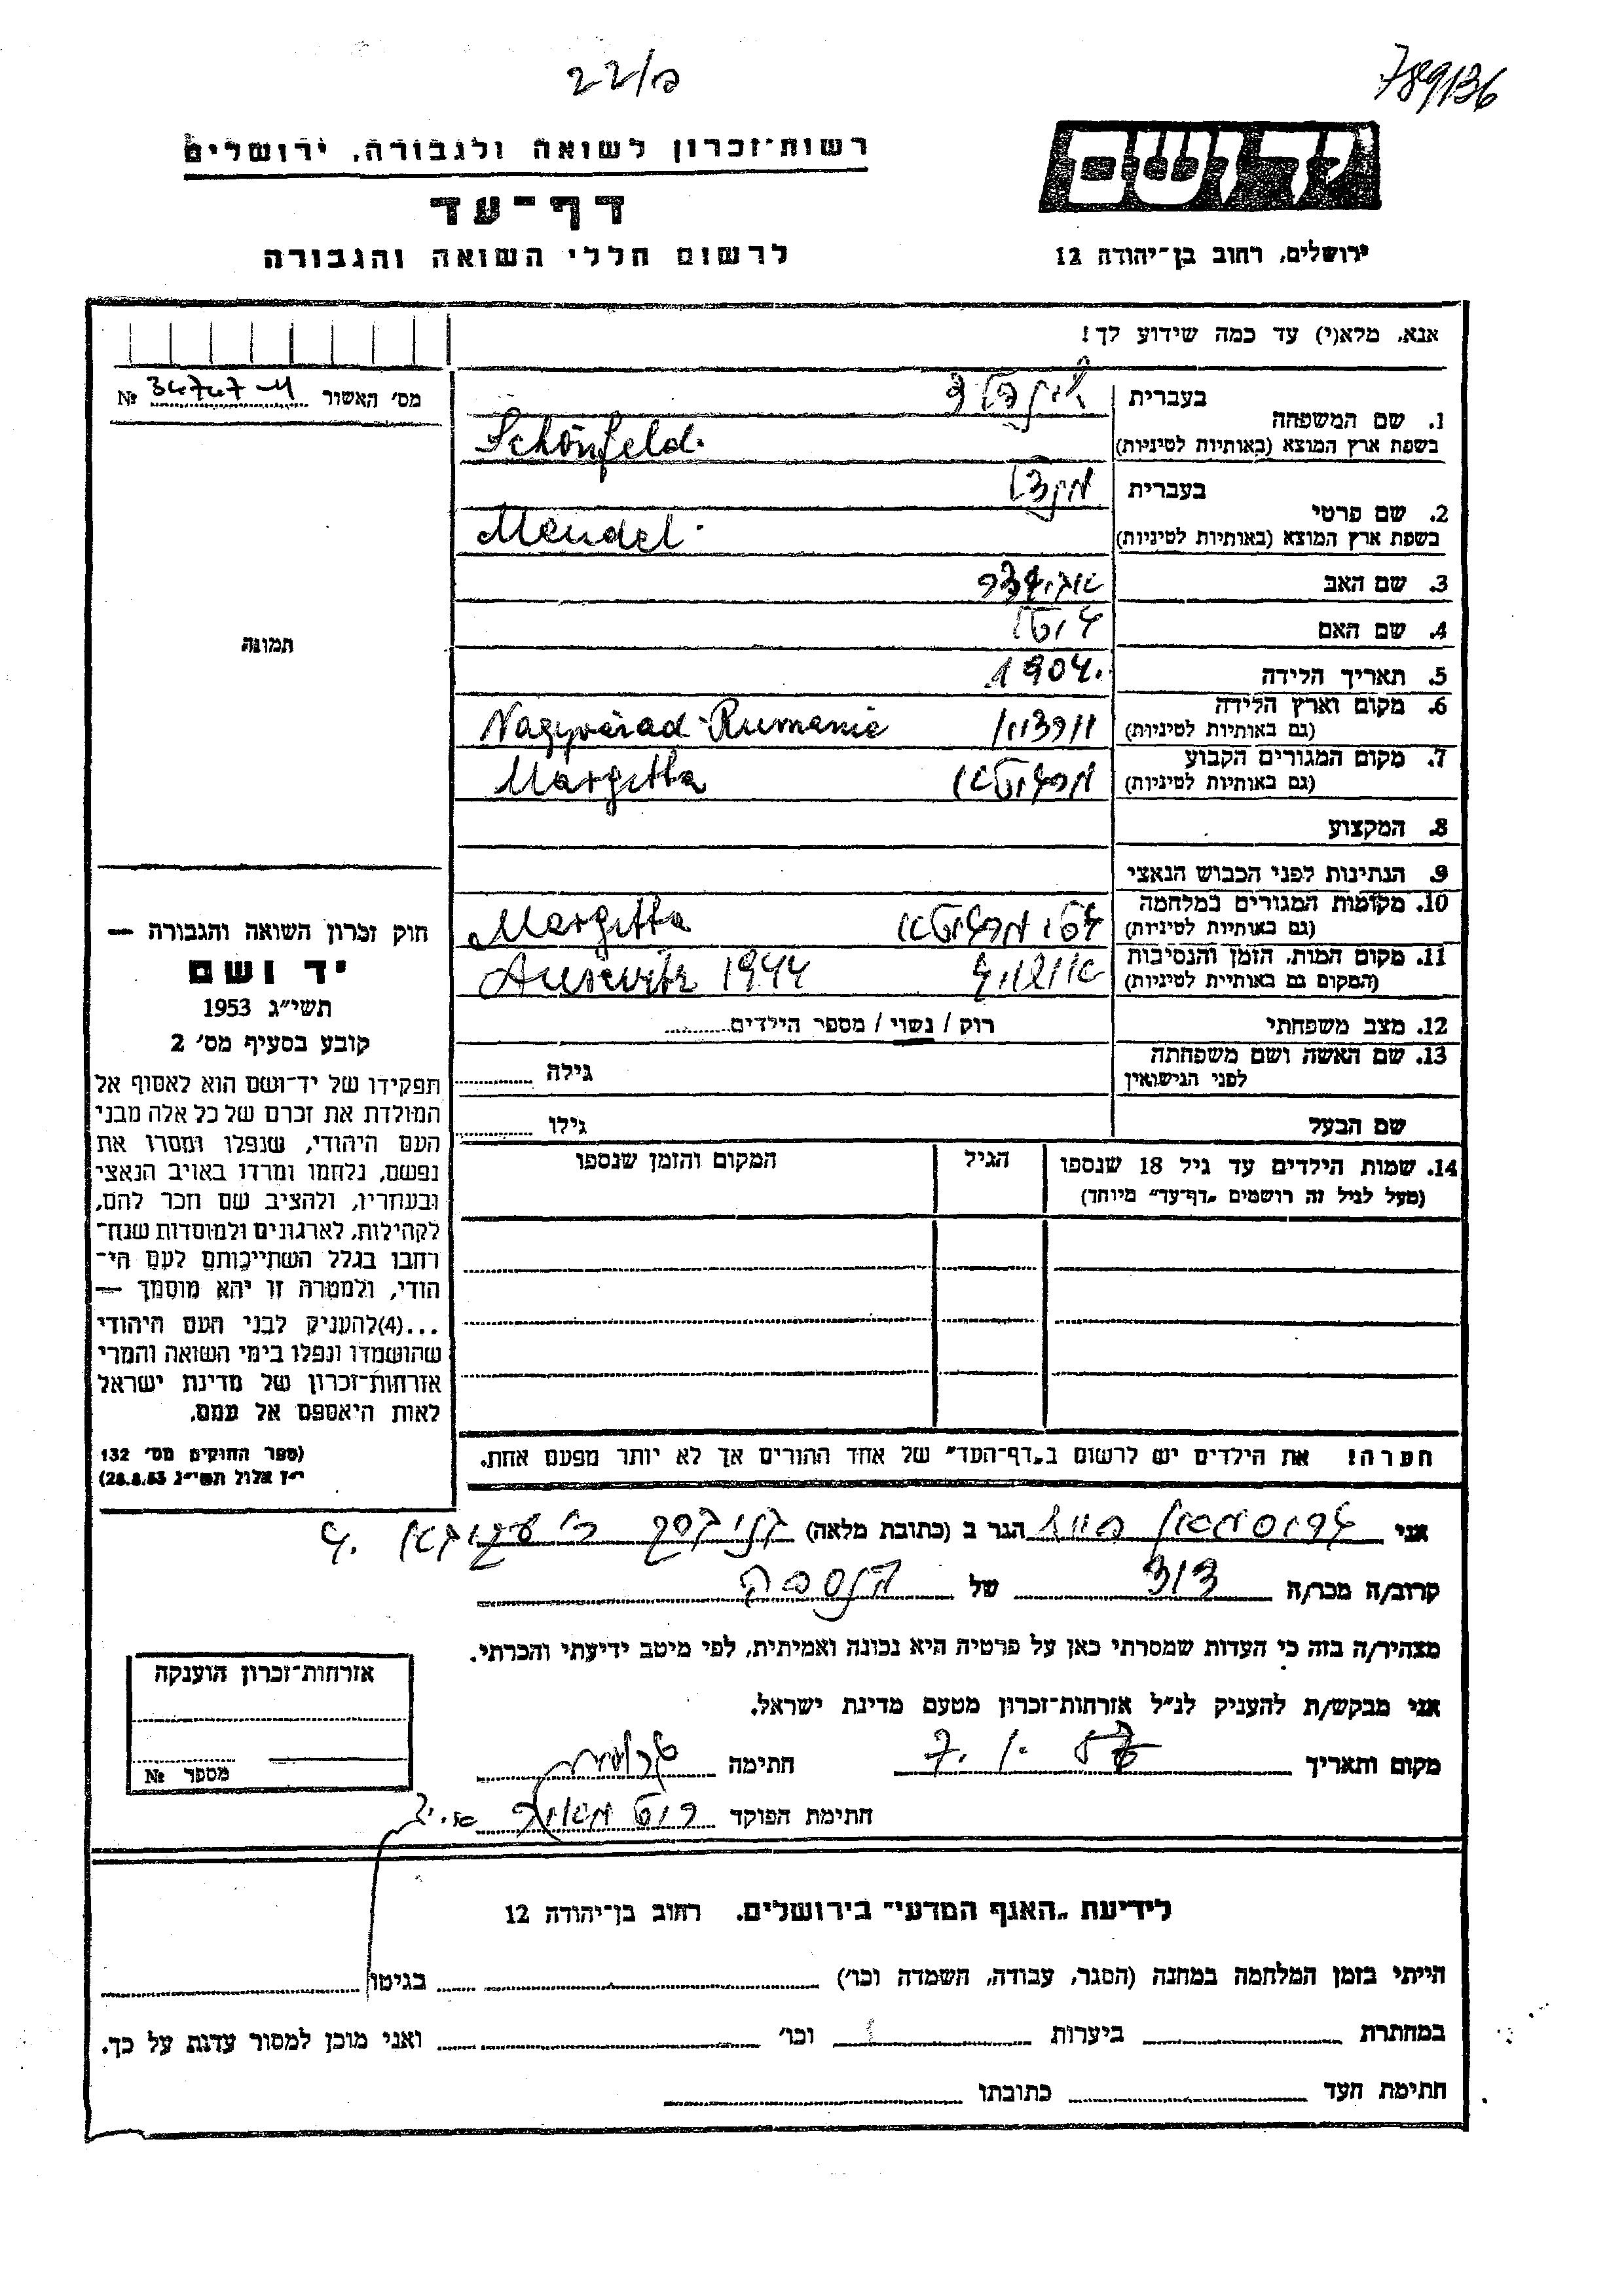 22/ם
789136
יד ושם
ירושלים, רחוב בן־יהודה 12
רשות־זכרון לשואה ולגבורה, ירושלים
דף־עד
לרשום חללי השואה והגבורה
אנא, מלא(י) עד כמה שידוע לך!
מס׳ האשור № 34747
1. שם המשפחה בעברית
בשפת ארץ המוצא (באותיות לטיניות) Schönfeld.
2. שם פרטי בעברית מנדל
בשפת ארץ המוצא (באותיות לטיניות) Mendel
3. שם האב
4. שם האם
5. תאריך הלידה 1904.
6. מקום וארץ הלידה
(גם באותיות לטיניות) Nagyvárad-Rumanie
7. מקום המגורים הקבוע
(גם באותיות לטיניות) מרגיטא Margitta
8. המקצוע
9. הנתינות לפני הכבוש הנאצי
10. מקומות המגורים במלחמה
(גם באותיות לטיניות) גטו מרגיטא Margitta
11. מקום המות, הזמן והנסיבות
(המקום גם באותיות לטיניות) אושויץ Auscwitz 1944
12. מצב משפחתי רוק / נשוי / מספר הילדים
13. שם האשה ושם משפחתה
לפני הנישואין גילה
שם הבעל גילו
14. שמות הילדים עד גיל 18 שנספו הגיל המקום והזמן שנספו
(מעל לגיל זה רושמים „דף־עד״ מיוחד)
הערה! את הילדים יש לרשום ב„דף־העד״ של אחד ההורים אך לא יותר מפעם אחת.
תמונה
חוק זכרון השואה והגבורה —
יד ושם
תשי״ג 1953
קובע בסעיף מס׳ 2
תפקידו של יד־ושם הוא לאסוף אל
המולדת את זכרם של כל אלה מבני
העם היהודי, שנפלו ומסרו את
נפשם, נלחמו ומרדו באויב הנאצי
ובעוזריו, ולהציב שם וזכר להם,
לקהילות, לארגונים ולמוסדות שנח־
רבו בגלל השתייכותם לעם הי־
הודי, ולמטרה זו יהא מוסמך —
...(4)להעניק לבני העם היהודי
שהושמדו ונפלו בימי השואה והמרי
אזרחות־זכרון של מדינת ישראל
לאות היאספם אל עמם.
(ספר החוקים מס׳ 132
י״ז אלול תשי״ג 28.8.53)
אני הגר ב (כתובת מלאה)
קרוב/ה מכר/ה דוד של הנספה
מצהיר/ה בזה כי העדות שמסרתי כאן על פרטיה היא נכונה ואמיתית, לפי מיטב ידיעתי והכרתי.
אני מבקש/ת להעניק לנ״ל אזרחות־זכרון מטעם מדינת ישראל.
מקום ותאריך 7. 1. 57 חתימה
חתימת הפוקד
אזרחות־זכרון הוענקה
מספר №
לידיעת „האגף המדעי״ בירושלים, רחוב בן־יהודה 12
הייתי בזמן המלחמה במחנה (הסגר, עבודה, השמדה וכו׳) בגיטו
במחתרת ביערות וכו׳ ואני מוכן למסור עדות על כך.
חתימת העד כתובתו